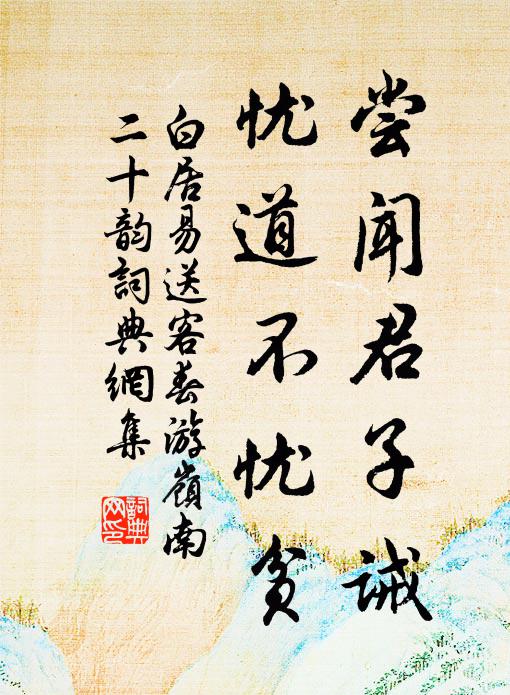 尝闻君子诫
忧道不忧贫
白居易送客春游嶺南
二十韵詞典網集
詞典